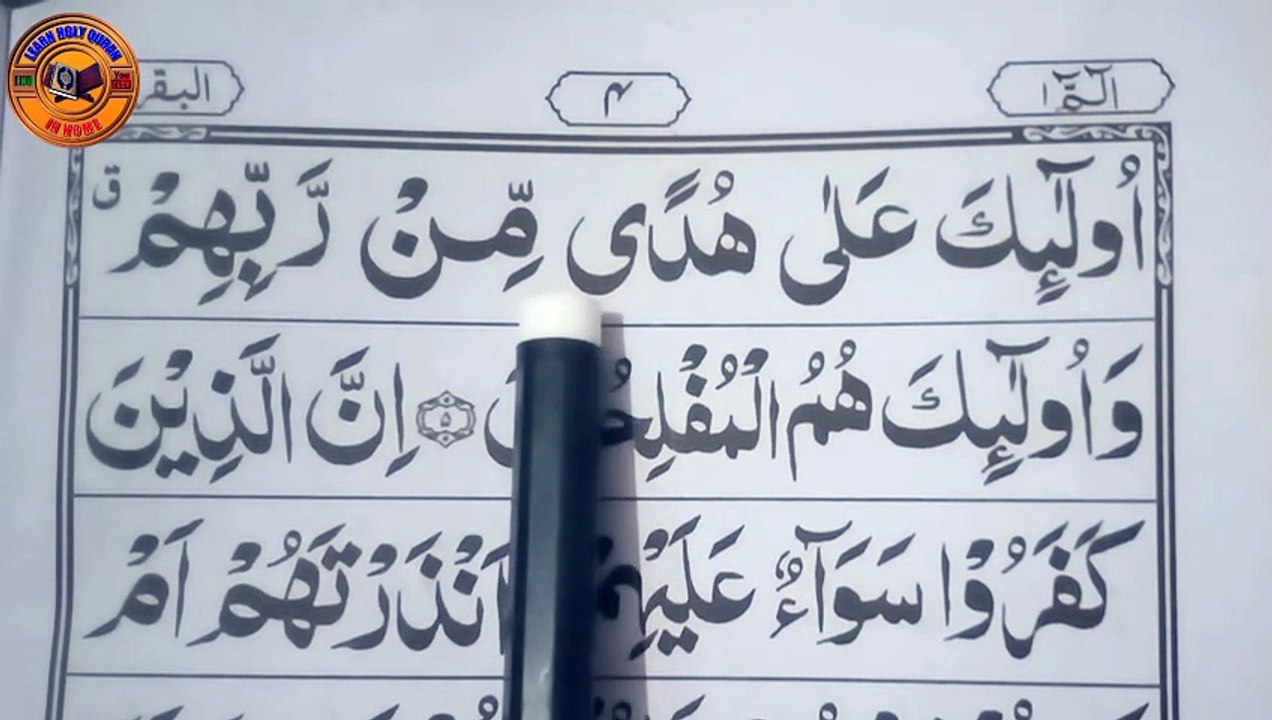 LEARN HOLY QURAN
IN HOME
الٓمّٓ ۱
۴
البقر
اُولٰٓئِكَ عَلٰی هُدًی مِّنْ رَّبِّهِمْ ۗق
وَاُولٰٓئِكَ هُمُ الْمُفْلِحُ ۵ اِنَّ الَّذِیْنَ
كَفَرُوْا سَوَآءٌ عَلَیْهِمْ اَنْذَرْتَهُمْ اَمْ